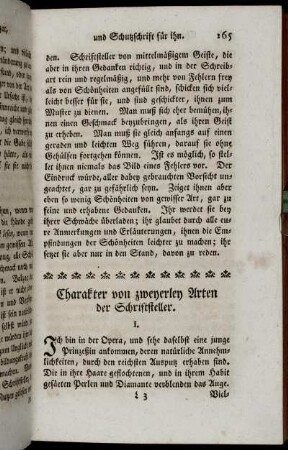 und Schutzschrift für ihn. 165
den. Schriftsteller von mittelmäßigem Geiste, die
aber in ihren Gedanken richtig, und in der Schreib-
art rein und regelmäßig, und mehr von Fehlern frey
als von Schönheiten angefüllt sind, schicken sich viel-
leicht besser für sie, und sind geschickter, ihnen zum
Muster zu dienen. Man muß sich eher bemühen, ih-
nen einen Geschmack beyzubringen, als ihren Geist
zu erheben. Man muß sie gleich anfangs auf einen
geraden und leichten Weg führen, darauf sie ohne
Gehülfen fortgehen können. Ist es möglich, so stel-
let ihnen niemals das Bild eines Fehlers vor. Der
Eindruck würde, aller dabey gebrauchten Vorsicht un-
geachtet, gar zu gefährlich seyn. Zeiget ihnen aber
eben so wenig Schönheiten von gewisser Art, gar zu
feine und erhabene Gedanken. Ihr werdet sie bey
ihrer Schwäche überladen; ihr glaubet durch alle eu-
re Anmerkungen und Erläuterungen, ihnen die Em-
pfindung der Schönheiten leichter zu machen; ihr
setzet sie aber nur in den Stand, davon zu reden.
Charakter von zweyerley Arten
der Schriftsteller.
I.
Ich bin in der Opera, und sehe daselbst eine junge
Prinzeßin ankommen, deren natürliche Annehm-
lichkeiten, durch den reichsten Ausputz erhaben sind.
Die in ihre Haare geflochtenen, und in ihrem Habit
gesäeten Perlen und Diamante verblenden das Auge.
L 3 Viel-